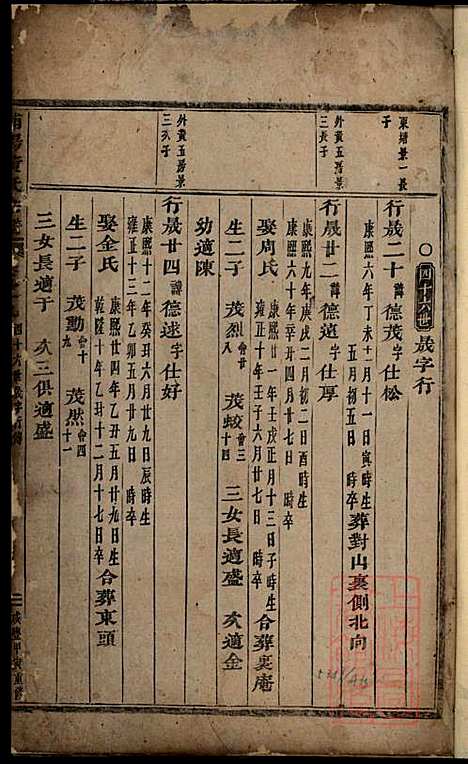 四十六世 晟字行
東塘景一長子
行晟二十 諱德茂 字仕松
康熙六年丁未十二月十一日寅時生
五月初五日 時卒 葬對山裏側北向
外黄五房景三長子
行晟廿二 諱德遠 字仕厚
康熙九年庚戌二月初二日酉時生
康熙六十年辛丑四月廿七日 時卒
娶周氏 康熙廿一年壬戌正月十三日子時生
雍正十年壬子六月廿七日 時卒 合葬裏庵
生二子 茂烈 會廿八 茂蛟 會三十四 三女長適盛 次適金
幼適陳
外黄五房景三次子
行晟廿四 諱德遂 字仕好
康熙十二年癸丑六月廿九日辰時生
雍正十三年乙卯五月廿九日 時卒
娶金氏 康熙廿四年乙丑五月廿九日生
乾隆十年乙丑十二月十七日卒 合葬東頭
生二子 茂勳 會十九 茂然 會四十一
三女長適于 次三俱適盛